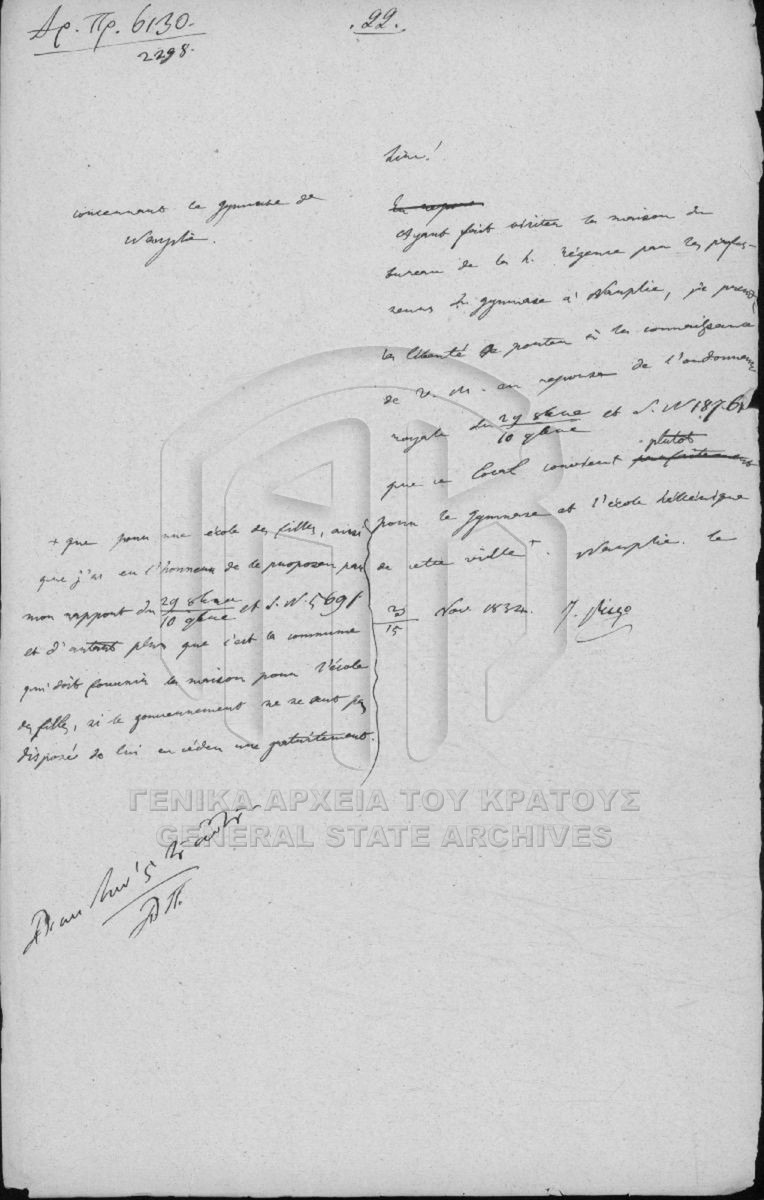 Αρ. Πρ. 6130.
2298.
.22.
concernant le gymnase de
Nauplie.
Sire!
Ayant fait visiter la maison du
bureau de la h. Régence par les profes-
seurs du gymnase à Nauplie, je prends
la liberté de porter à la connaissance
de V. M. en réponse de l'ordonnance
royale du 29 8bre / 10 9bre et S. N 1876
que ce local convient plutôt
pour le gymnase et l'école hellénique
de cette ville +. Nauplie. le
15 Nov. 1834.
+ que pour une école des filles, ainsi
que j'ai eu l'honneur de le proposer par
mon rapport du 29 8bre / 10 9bre et S. N. 5691
et d'autant plus que c'est la commune
qui doit fournir la maison pour l'école
des filles, si le gouvernement ne se sent pas
disposé de lui en céder une gratuitement.
ΓΕΝΙΚΑ ΑΡΧΕΙΑ ΤΟΥ ΚΡΑΤΟΥΣ
GENERAL STATE ARCHIVES